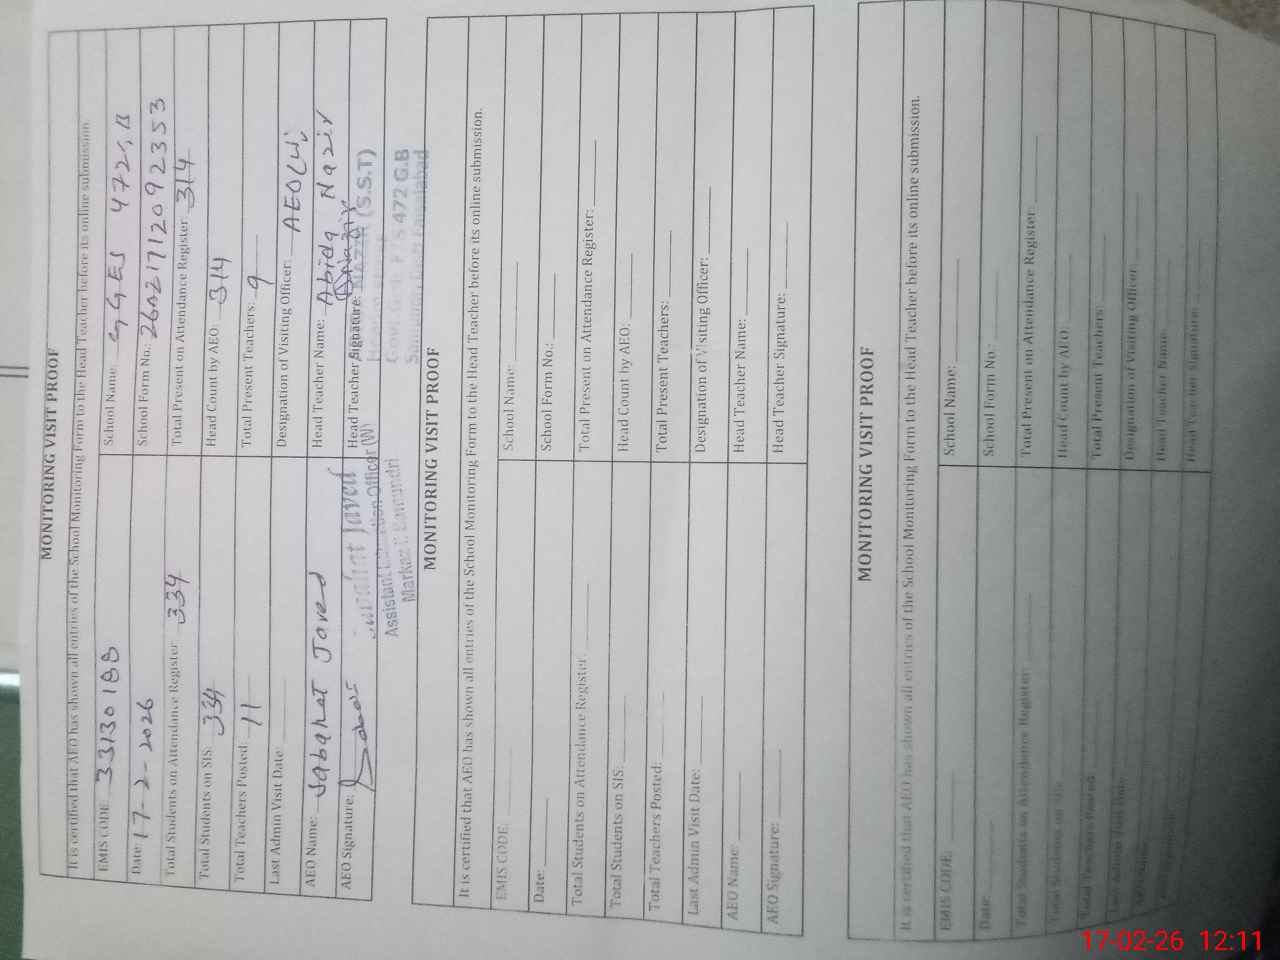 MONITORING VISIT PROOF
It is certified that AEO has shown all entries of the School Monitoring Form to the Head Teacher before its online submission.
EMIS CODE: 33130188 School Name: GGES 472 G.B
Date: 17-2-2026 School Form No.: 260217112092353
Total Students on Attendance Register 334 Total Present on Attendance Register 314
Total Students on SIS: 334 Head Count by AEO: 314
Total Teachers Posted: 11 Total Present Teachers: 9
Last Admin Visit Date: Designation of Visiting Officer: AEO(W)
AEO Name: Sabahat Javed Head Teacher Name: Abida Nazir
AEO Signature: Head Teacher Signature:
Sabahat Javed
Assistant Education Officer (W)
Markaz
(S.S.T)
472 G.B
MONITORING VISIT PROOF
It is certified that AEO has shown all entries of the School Monitoring Form to the Head Teacher before its online submission.
EMIS CODE: School Name:
Date: School Form No.:
Total Students on Attendance Register: Total Present on Attendance Register:
Total Students on SIS: Head Count by AEO:
Total Teachers Posted: Total Present Teachers:
Last Admin Visit Date: Designation of Visiting Officer:
AEO Name: Head Teacher Name:
AEO Signature: Head Teacher Signature:
MONITORING VISIT PROOF
It is certified that AEO has shown all entries of the School Monitoring Form to the Head Teacher before its online submission.
EMIS CODE: School Name:
Date: School Form No.:
Total Students on Attendance Register: Total Present on Attendance Register:
Total Students on SIS: Head Count by AEO:
Total Teachers Posted: Total Present Teachers:
Last Admin Visit Date: Designation of Visiting Officer:
Head Teacher Name:
Head Teacher Signature:
17-02-26 12:11